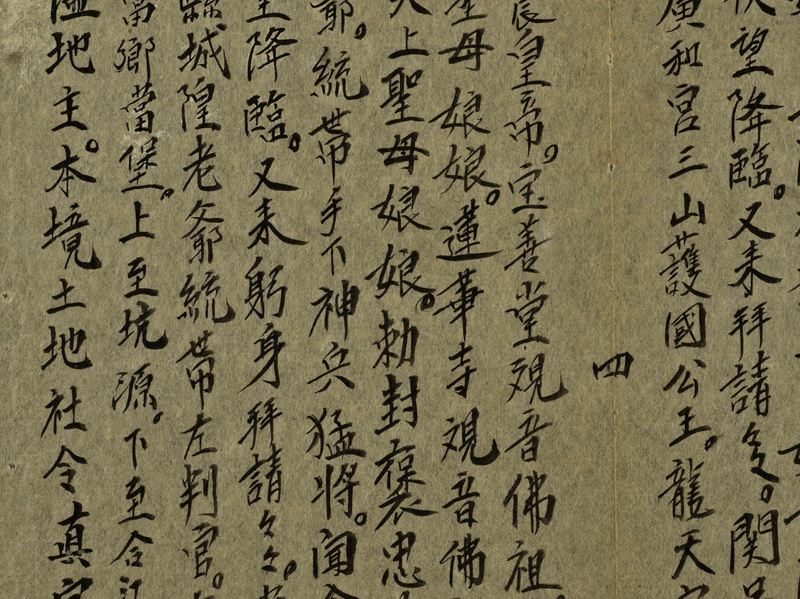 伏望降臨。又来拜請々。関
廣和宮三山護國公王。龍天
四
辰皇帝。宝善堂观音佛祖
聖母娘娘。蓮華寺观音佛
天上聖母娘娘。勅封褒忠
爺。統帶手下神兵猛将。闻
降臨。又来躬身拜請々々。
縣城隍老爺統帶左判官。
當鄉當堡。上至坑源。下至合
地主。本境土地社令真官